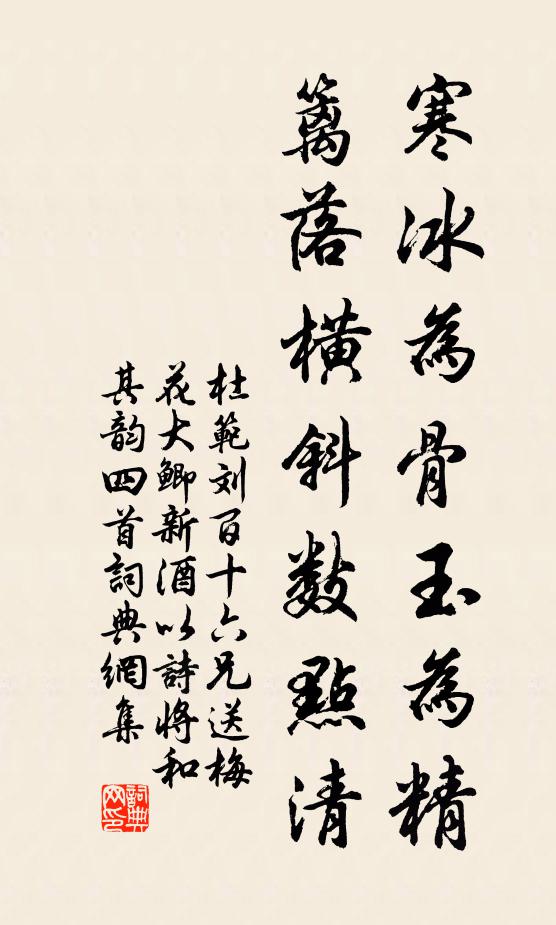 寒冰為骨玉為精
籬落橫斜數點清
杜範刘百十六兄送梅
花大鲫新酒以詩將和
其韵四首詞典網集
詞典
网印